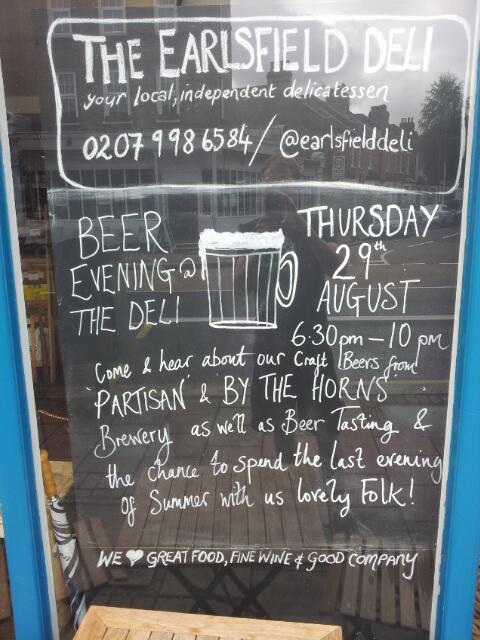 THE EARLSFIELD DELI
your local, independent delicatessen
0207 998 6584 / @earlsfielddeli
BEER
EVENING @
THE DELI
THURSDAY
29th
AUGUST
6.30pm — 10 pm
Come & hear about our Craft Beers from
'PARTISAN' & BY THE HORNS
Brewery as well as Beer Tasting &
the chance to spend the last evening
of Summer with us lovely Folk!
WE ♥ GREAT FOOD, FINE WINE & GOOD COMPANY